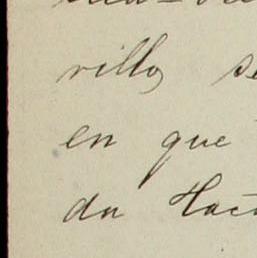 rillo, se
en que
du Hac